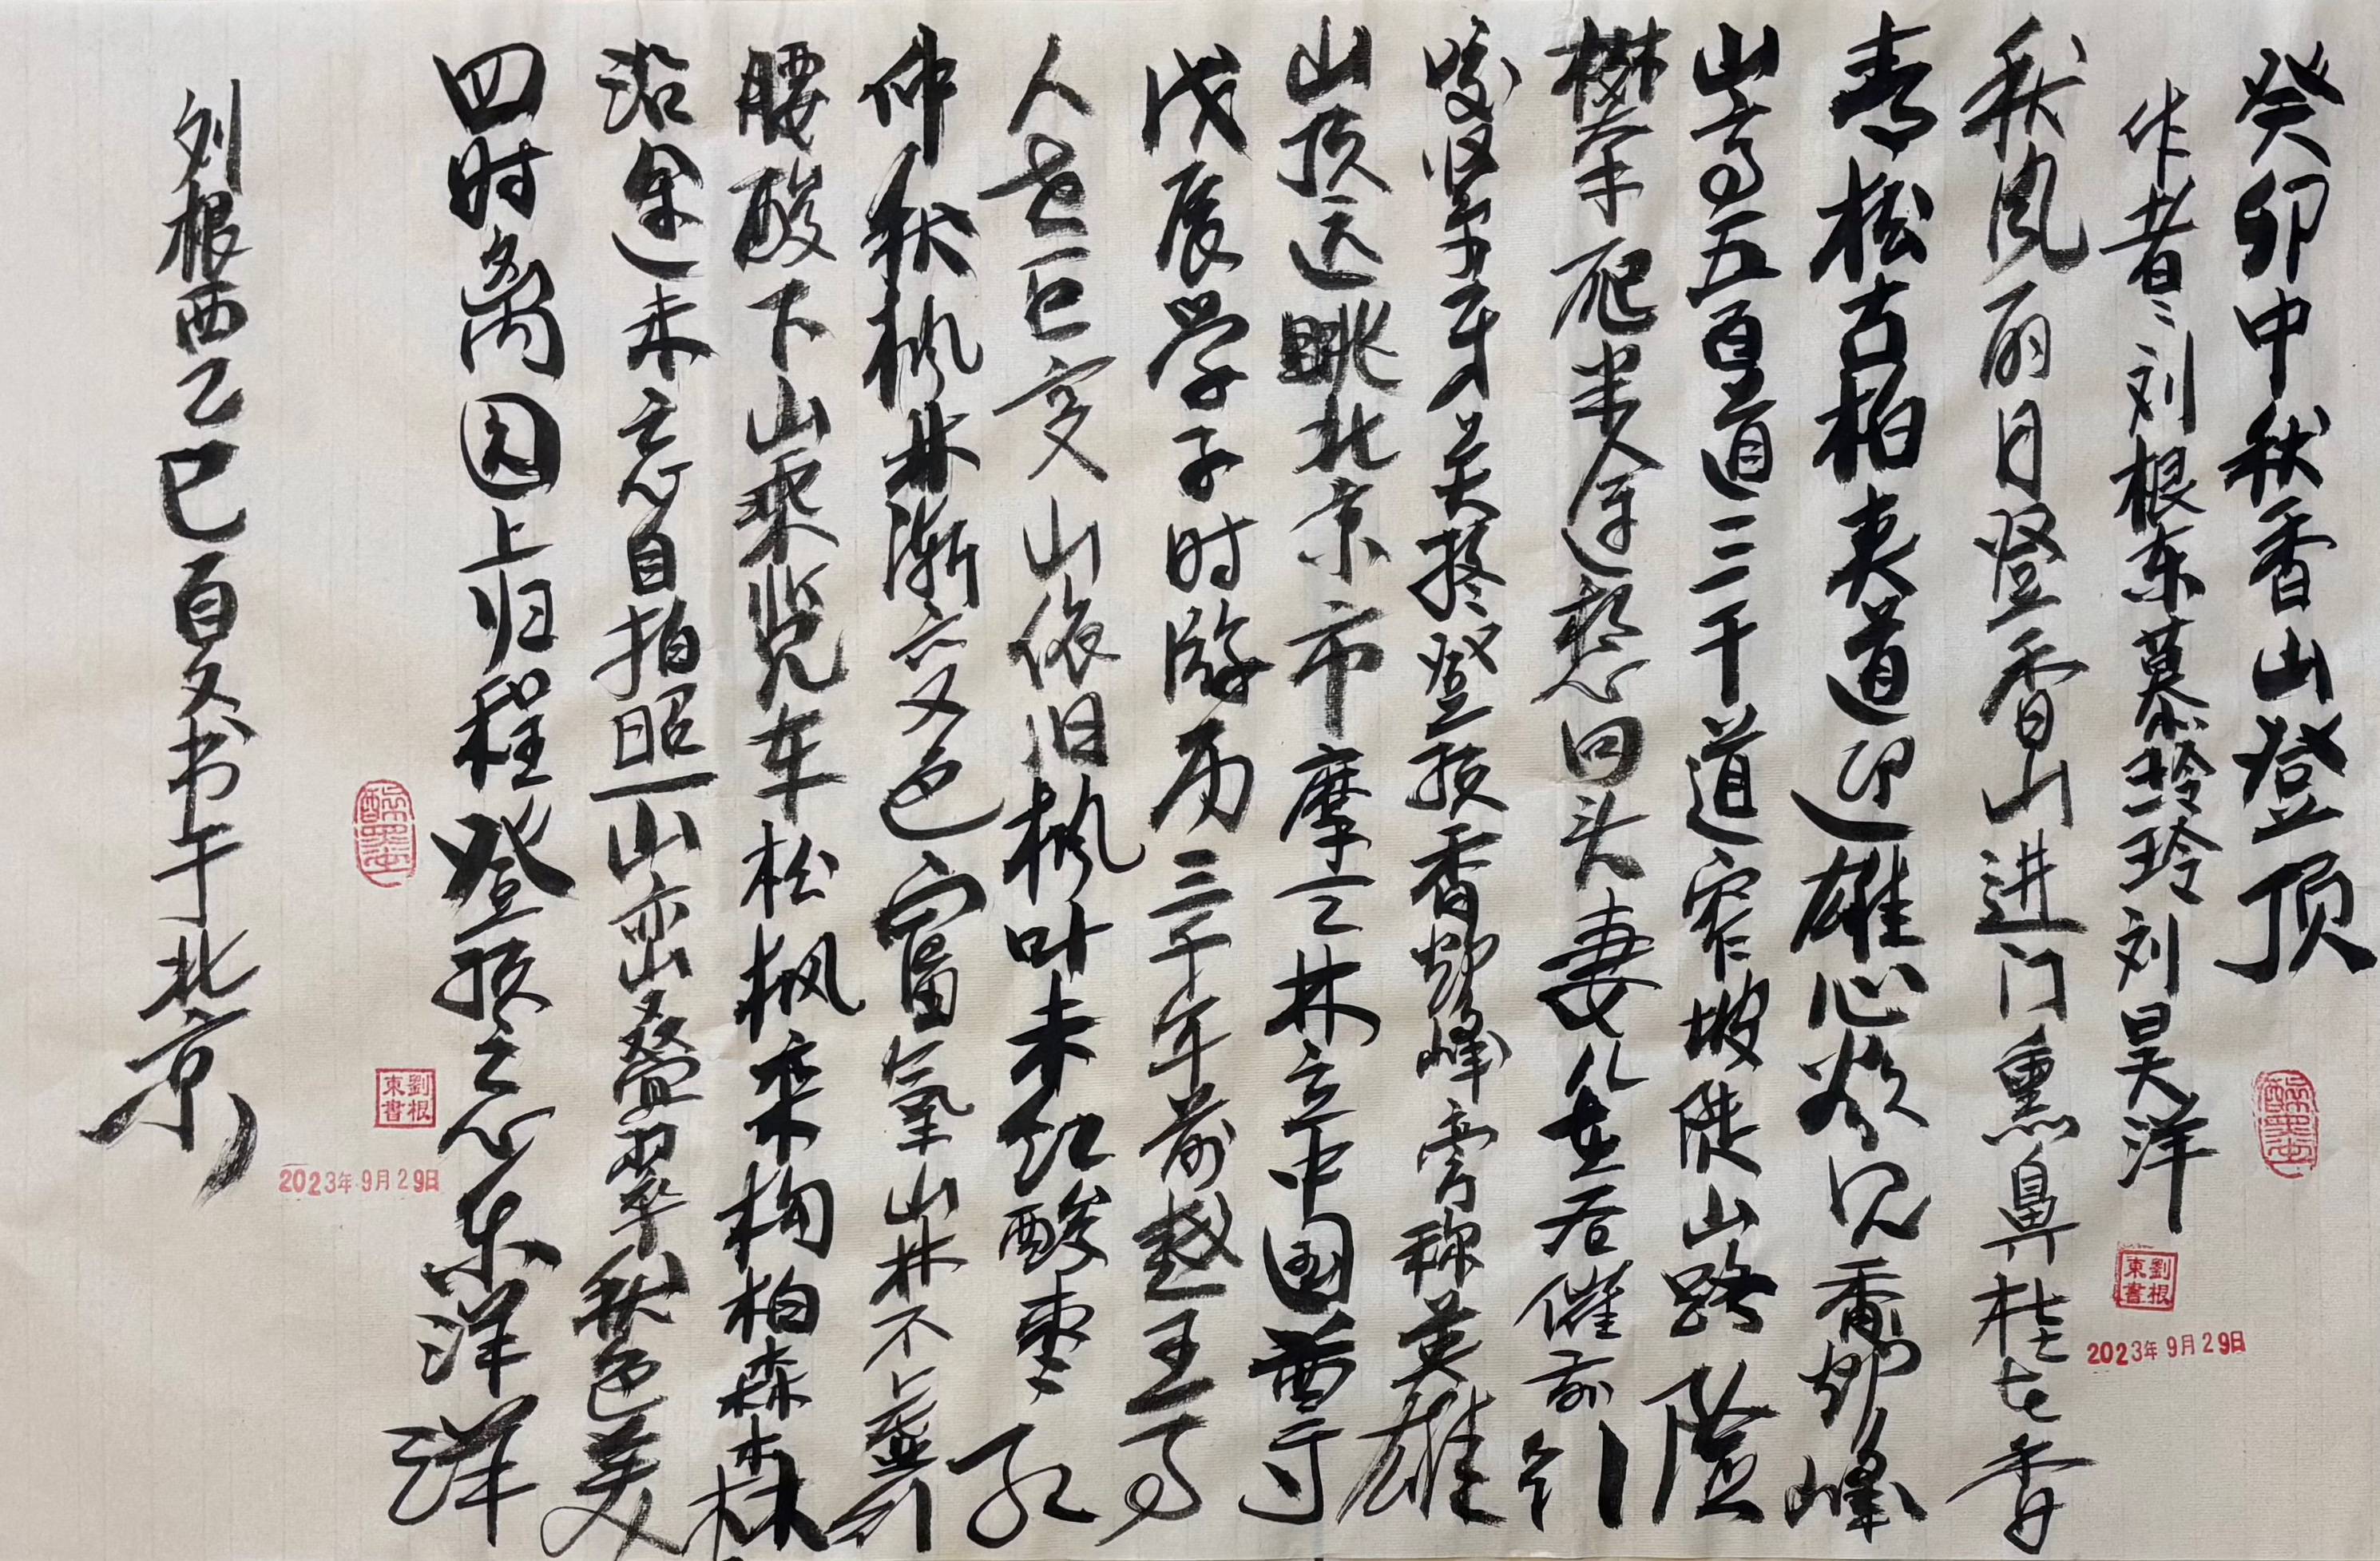 癸卯中秋香山登顶
作者:刘根东慕玲玲刘昊洋
秋风丽日登香山进门熏鼻桂花香
青松古柏夹道迎雄心欲见香炉峰
山高五百道三千道窄坡陡山路险
攀爬半途想回头妻儿在右催前行
咬紧牙关拼登顶香炉峰旁称英雄
山顶远眺北京市摩云林立中国尊
戊辰学子时游历三十年前越王
人老巨变山依旧枫叶未红酸枣红
仲秋枫林渐变色富氧山林不虚
腰酸下山乘览车松枫栾构柏森森
沿途未忘自拍照一山峦叠翠秋色美
四时离园上归程登顶之心乐洋洋
刘根西乙巳百文书于北京
醉墨
劉根東書
2023年9月29日
醉墨
劉根東書
2023年9月29日